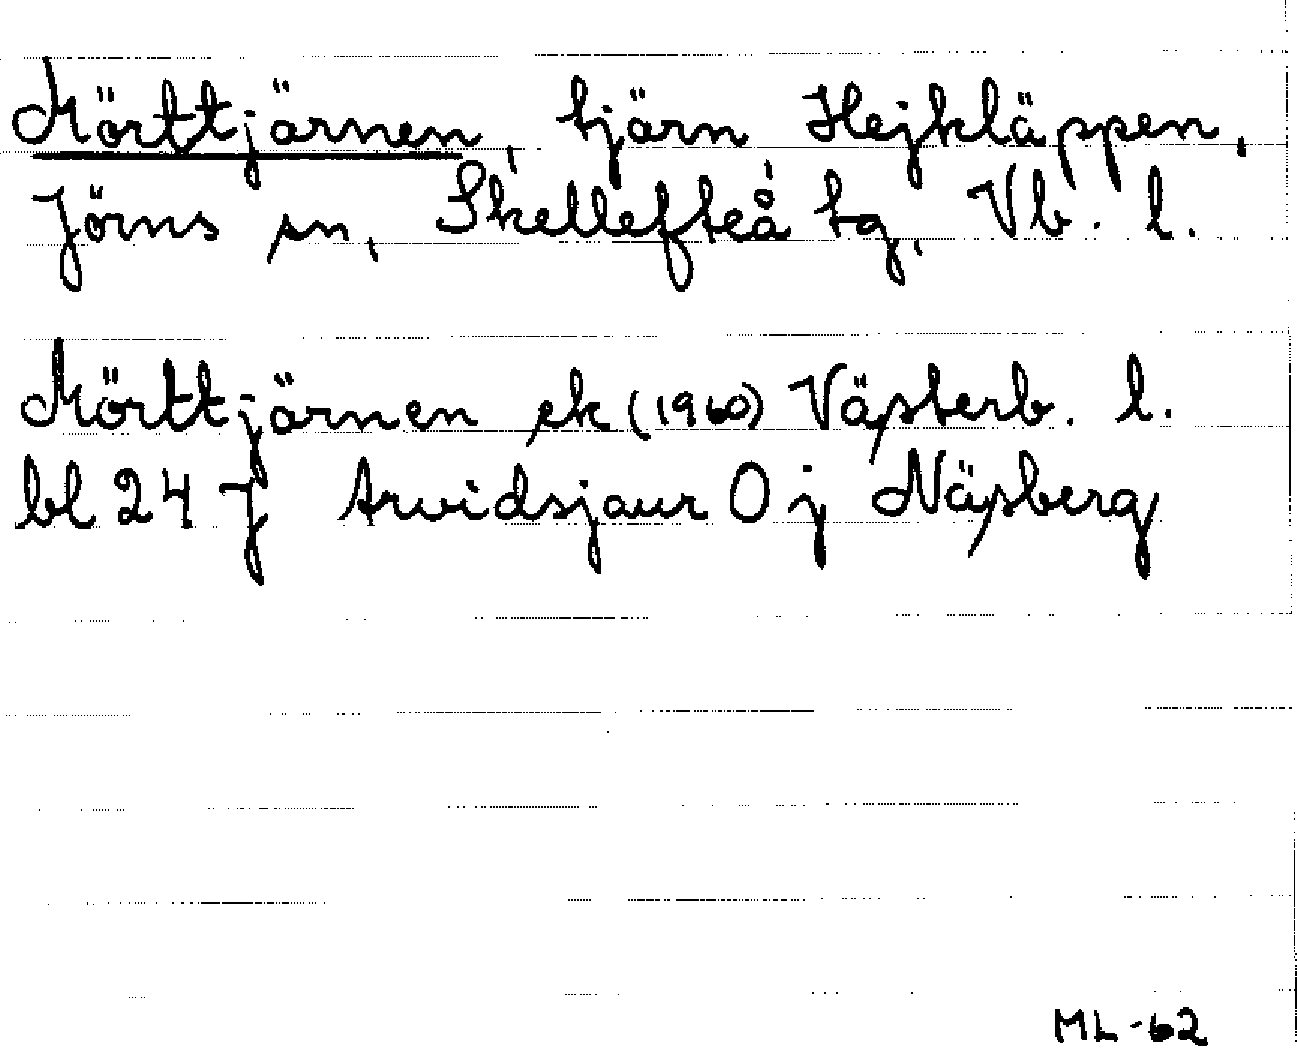 Mörttjärnen, tjärn Hejkläppen,
Jörns sn, Skellefteå tg, Vb. l.
Mörttjärnen ek (1960) Västerb. l.
bl 24 J Arvidsjaur O j Näsberg
ML -62